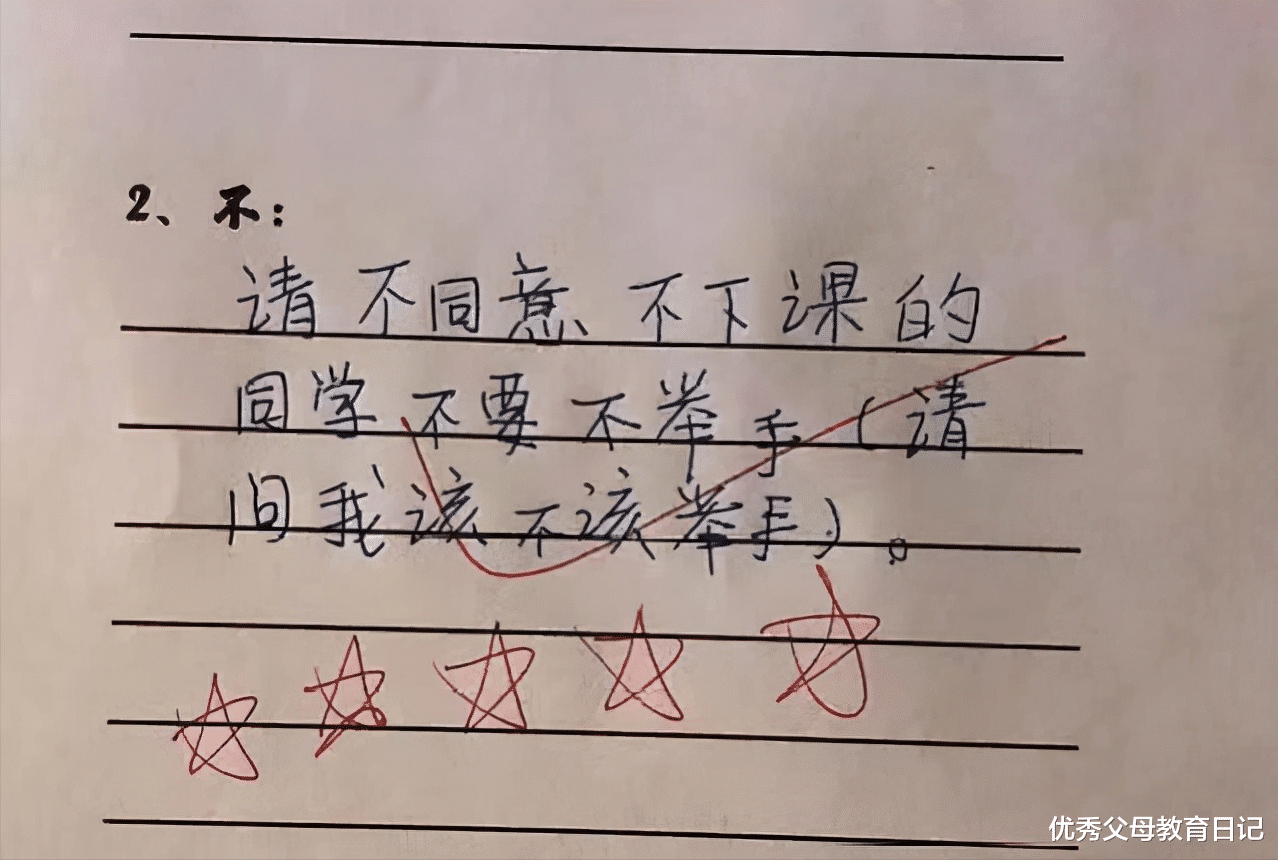 2、不：
请不同意不下课的
同学不要不举手(请
问我该不该举手)。
优秀父母教育日记